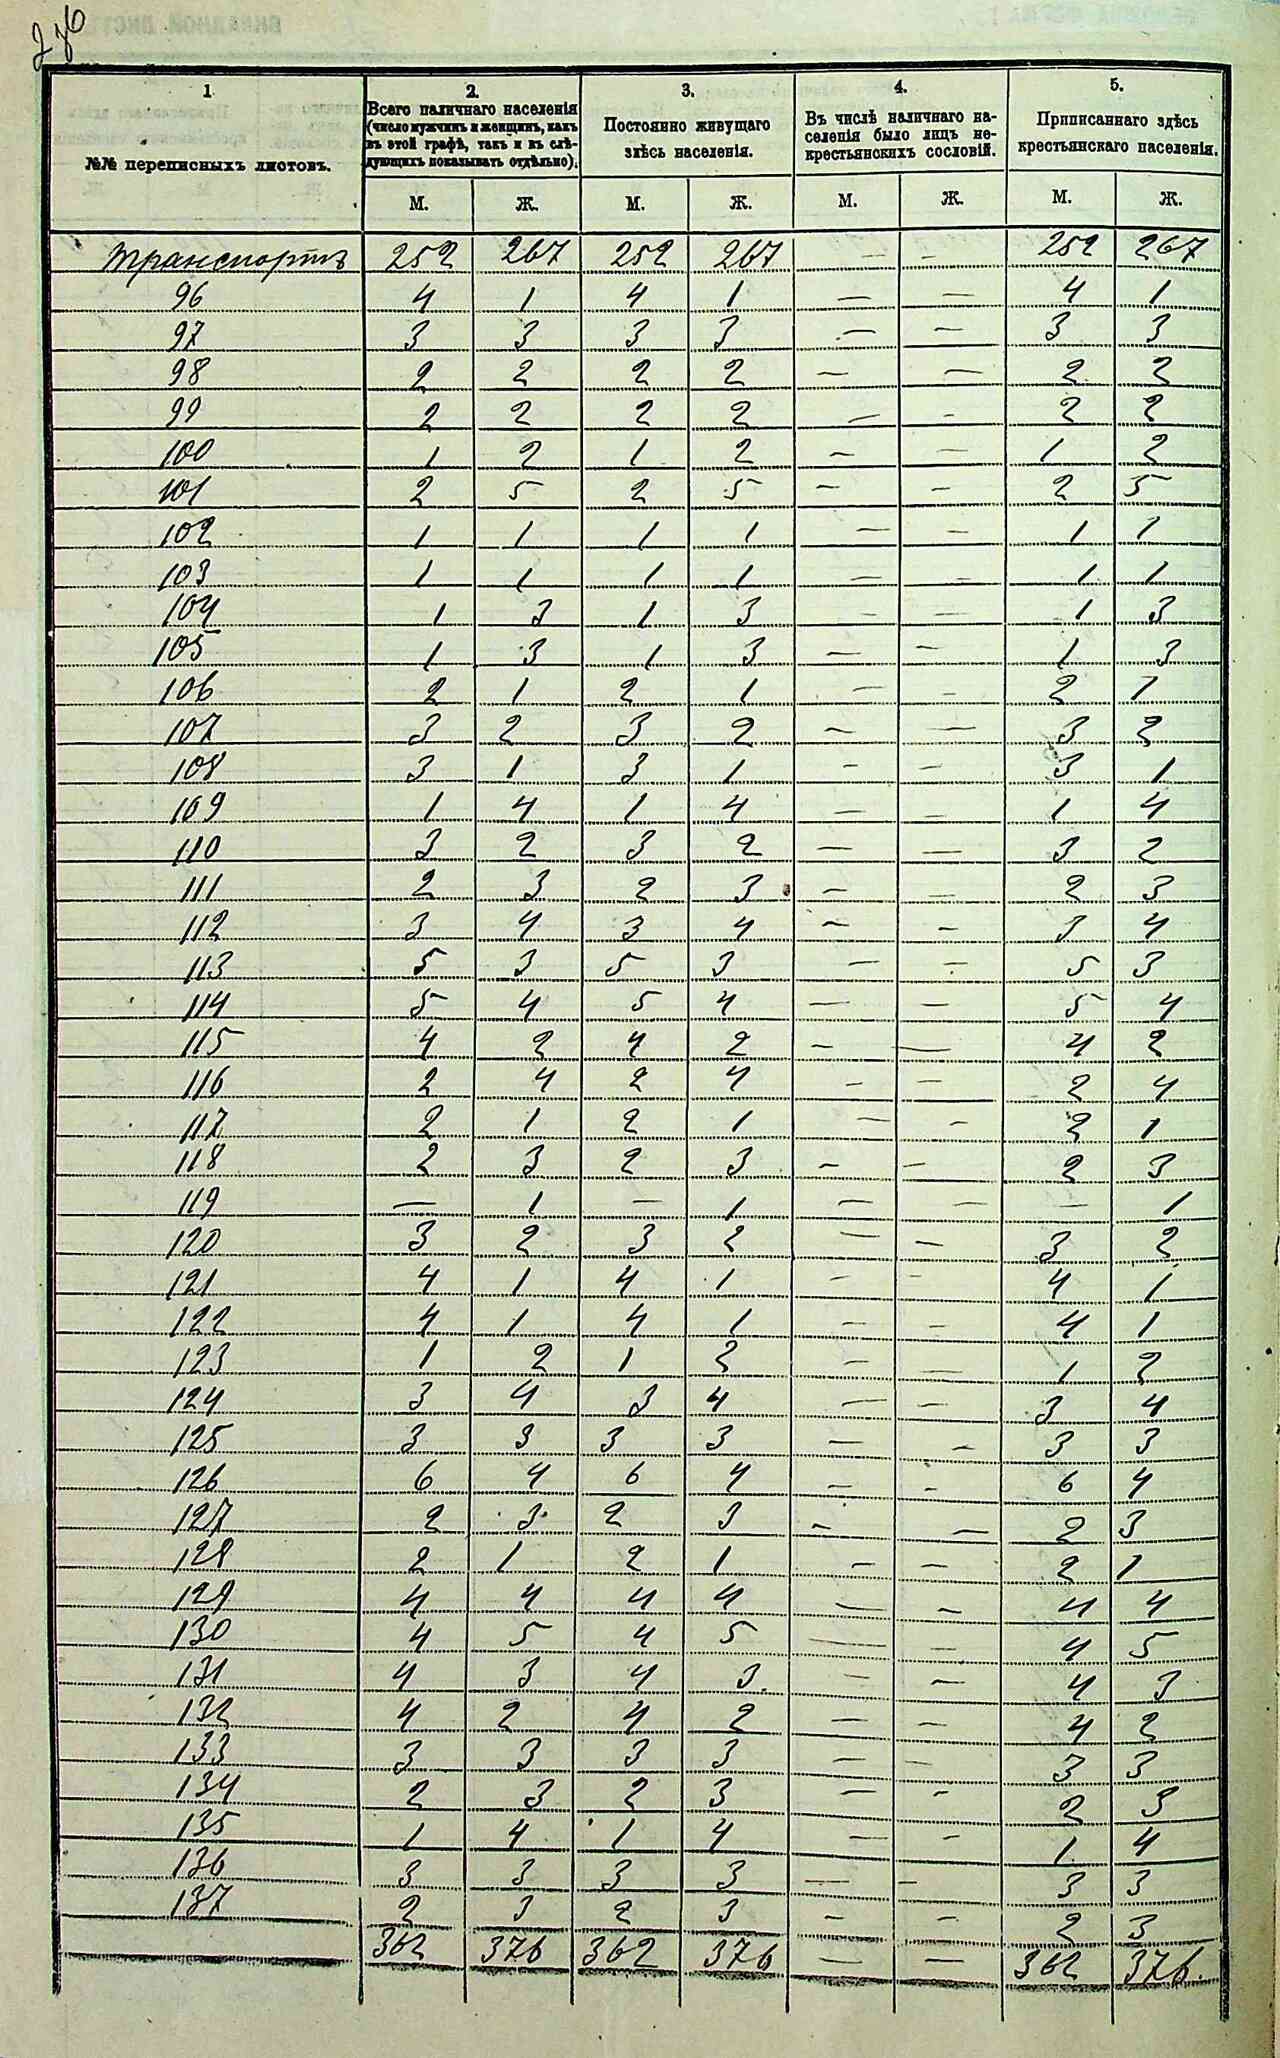 276
1
№№ переписныхъ листовъ.
2.
Всего наличнаго населенія
(число мужчинъ и женщинъ, какъ
въ этой графѣ, такъ и въ слѣ-
дующихъ показывать отдѣльно).
3.
Постоянно живущаго
здѣсь населенія.
4.
Въ числѣ наличнаго на-
селенія было лицъ не-
крестьянскихъ сословій.
5.
Приписаннаго здѣсь
крестьянскаго населенія.
М. Ж. М. Ж. М. Ж. М. Ж.
транспортъ 252 267 252 267 — — 252 267
96 4 1 4 1 — — 4 1
97 3 3 3 3 — — 3 3
98 2 2 2 2 — — 2 2
99 2 2 2 2 — — 2 2
100 1 2 1 2 — — 1 2
101 2 5 2 5 — — 2 5
102 1 1 1 1 — — 1 1
103 1 1 1 1 — — 1 1
104 1 3 1 3 — — 1 3
105 1 3 1 3 — — 1 3
106 2 1 2 1 — — 2 1
107 3 2 3 2 — — 3 2
108 3 1 3 1 — — 3 1
109 1 4 1 4 — — 1 4
110 3 2 3 2 — — 3 2
111 2 3 2 3 — — 2 3
112 3 4 3 4 — — 3 4
113 5 3 5 3 — — 5 3
114 5 4 5 4 — — 5 4
115 4 2 4 2 — — 4 2
116 2 4 2 4 — — 2 4
117 2 1 2 1 — — 2 1
118 2 3 2 3 — — 2 3
119 — 1 — 1 — — — 1
120 3 2 3 2 — — 3 2
121 4 1 4 1 — — 4 1
122 4 1 4 1 — — 4 1
123 1 2 1 2 — — 1 2
124 3 4 3 4 — — 3 4
125 3 3 3 3 — — 3 3
126 6 4 6 4 — — 6 4
127 2 3 2 3 — — 2 3
128 2 1 2 1 — — 2 1
129 4 4 4 4 — — 4 4
130 4 5 4 5 — — 4 5
131 4 3 4 3 — — 4 3
132 4 2 4 2 — — 4 2
133 3 3 3 3 — — 3 3
134 2 3 2 3 — — 2 3
135 1 4 1 4 — — 1 4
136 3 3 3 3 — — 3 3
137 2 3 2 3 — — 2 3
362 376 362 376 — — 362 376